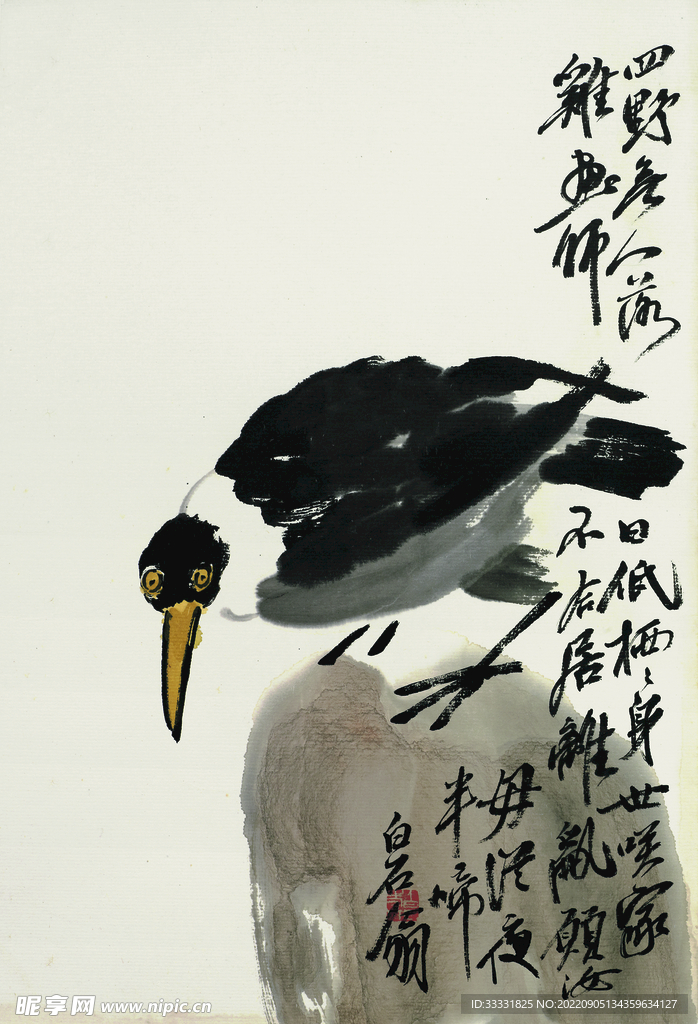 四野無人落日低栖〻身世咲家
雞畫師不右居離亂願汝
毋從夜
半啼
白石翁
昵享网 www.nipic.cn
ID:33331825 NO:20220905134359634127